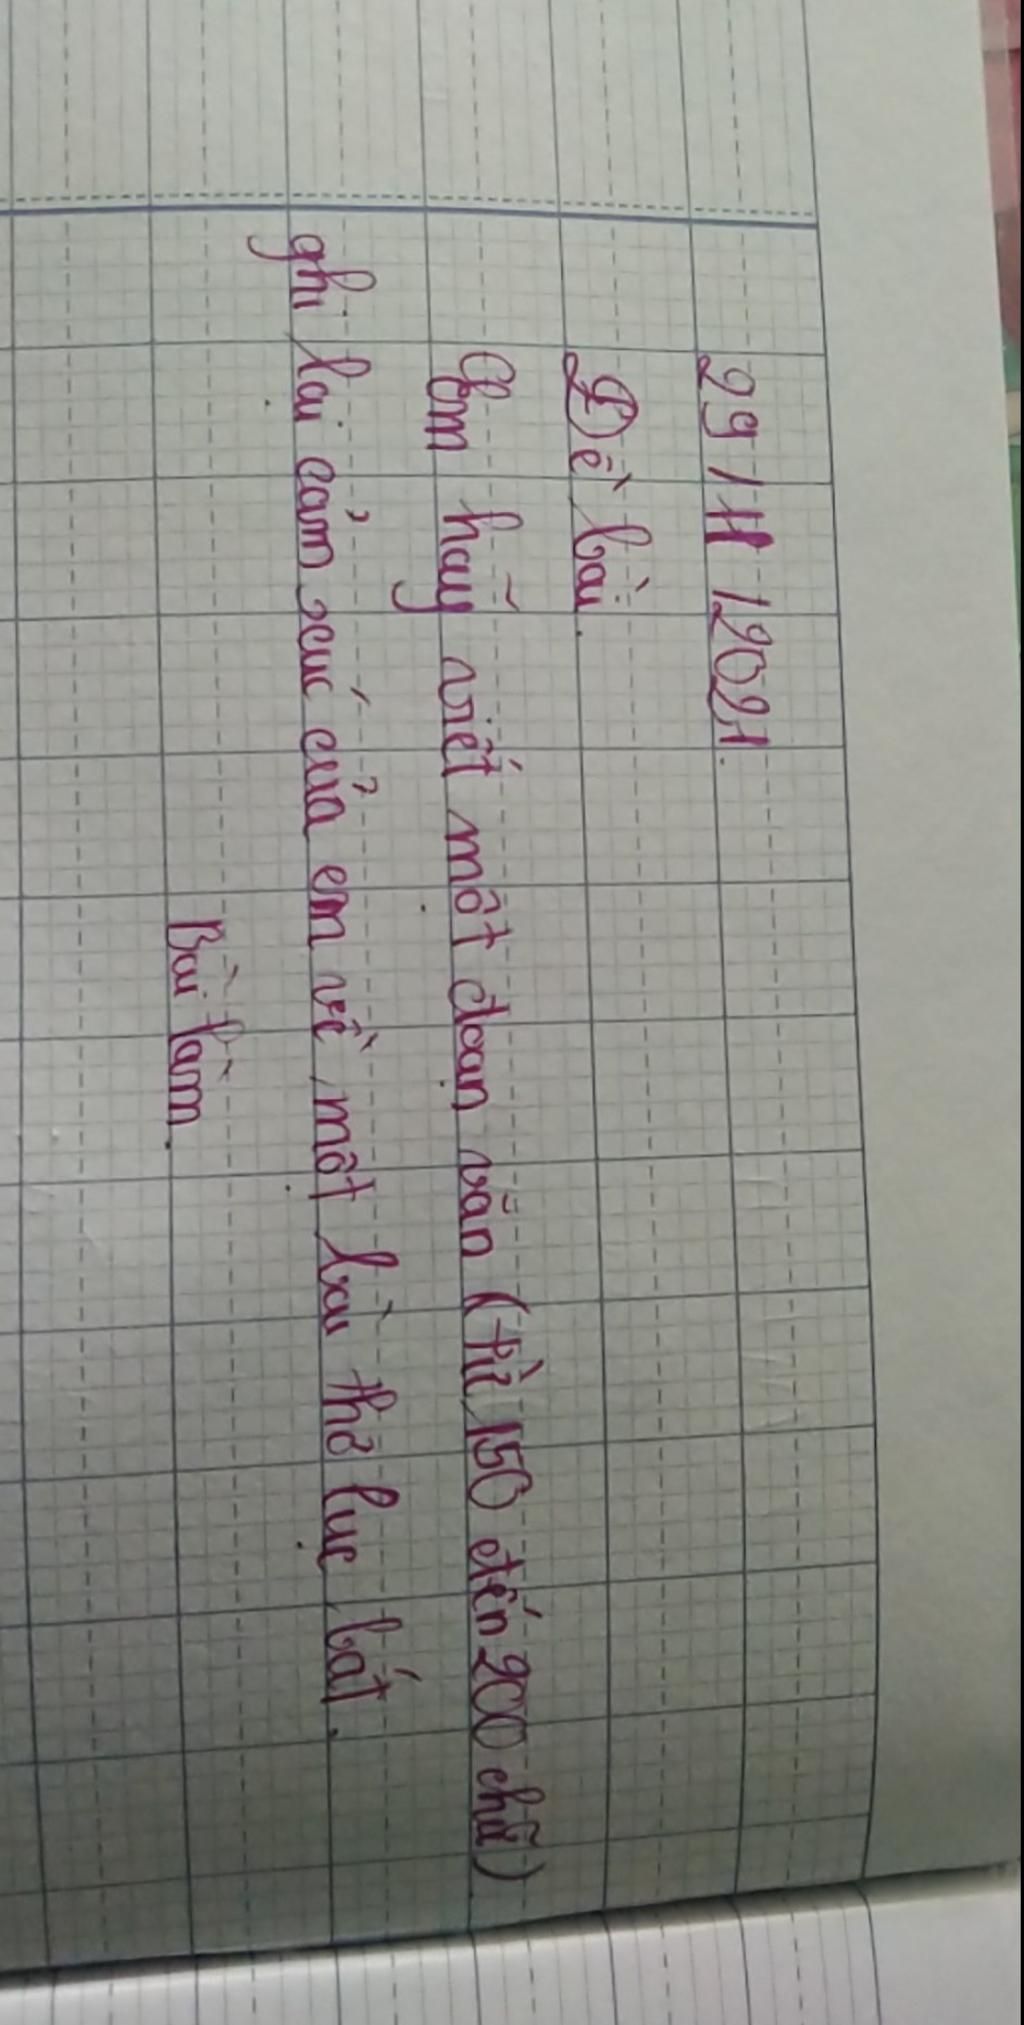 29/11/2021.
Đề bài.
Em hãy viết một đoạn văn (từ 150 đến 200 chữ)
ghi lại cảm xúc của em về một bài thơ lục bát.
Bài làm.